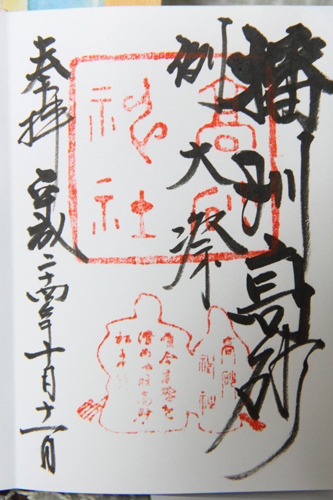 播州高砂
例大祭
奉拝 平成二十四年十月十一日
高砂
神社
高砂
神社